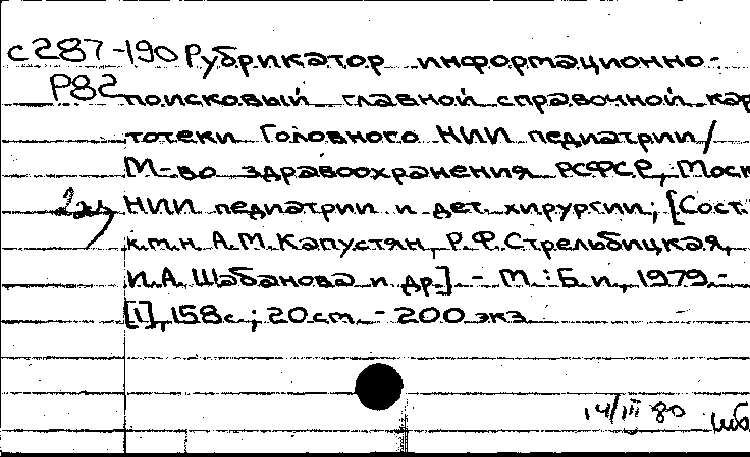 с287-190 Рубрикатор информационно-
Р82 поисковый главной справочной кар
тотеки Головного НИИ педиатрии /
М-во здравоохранения РСФСР, Моск
НИИ педиатрии и дет. хирургии; [Сост.
к.м.н. А.М.Капустян, Р.Ф.Стрельбицкая,
И.А. Шабанова и др.] - М.: Б.и., 1979.-
[1], 158с.; 20см. - 200 экз
14/III 80